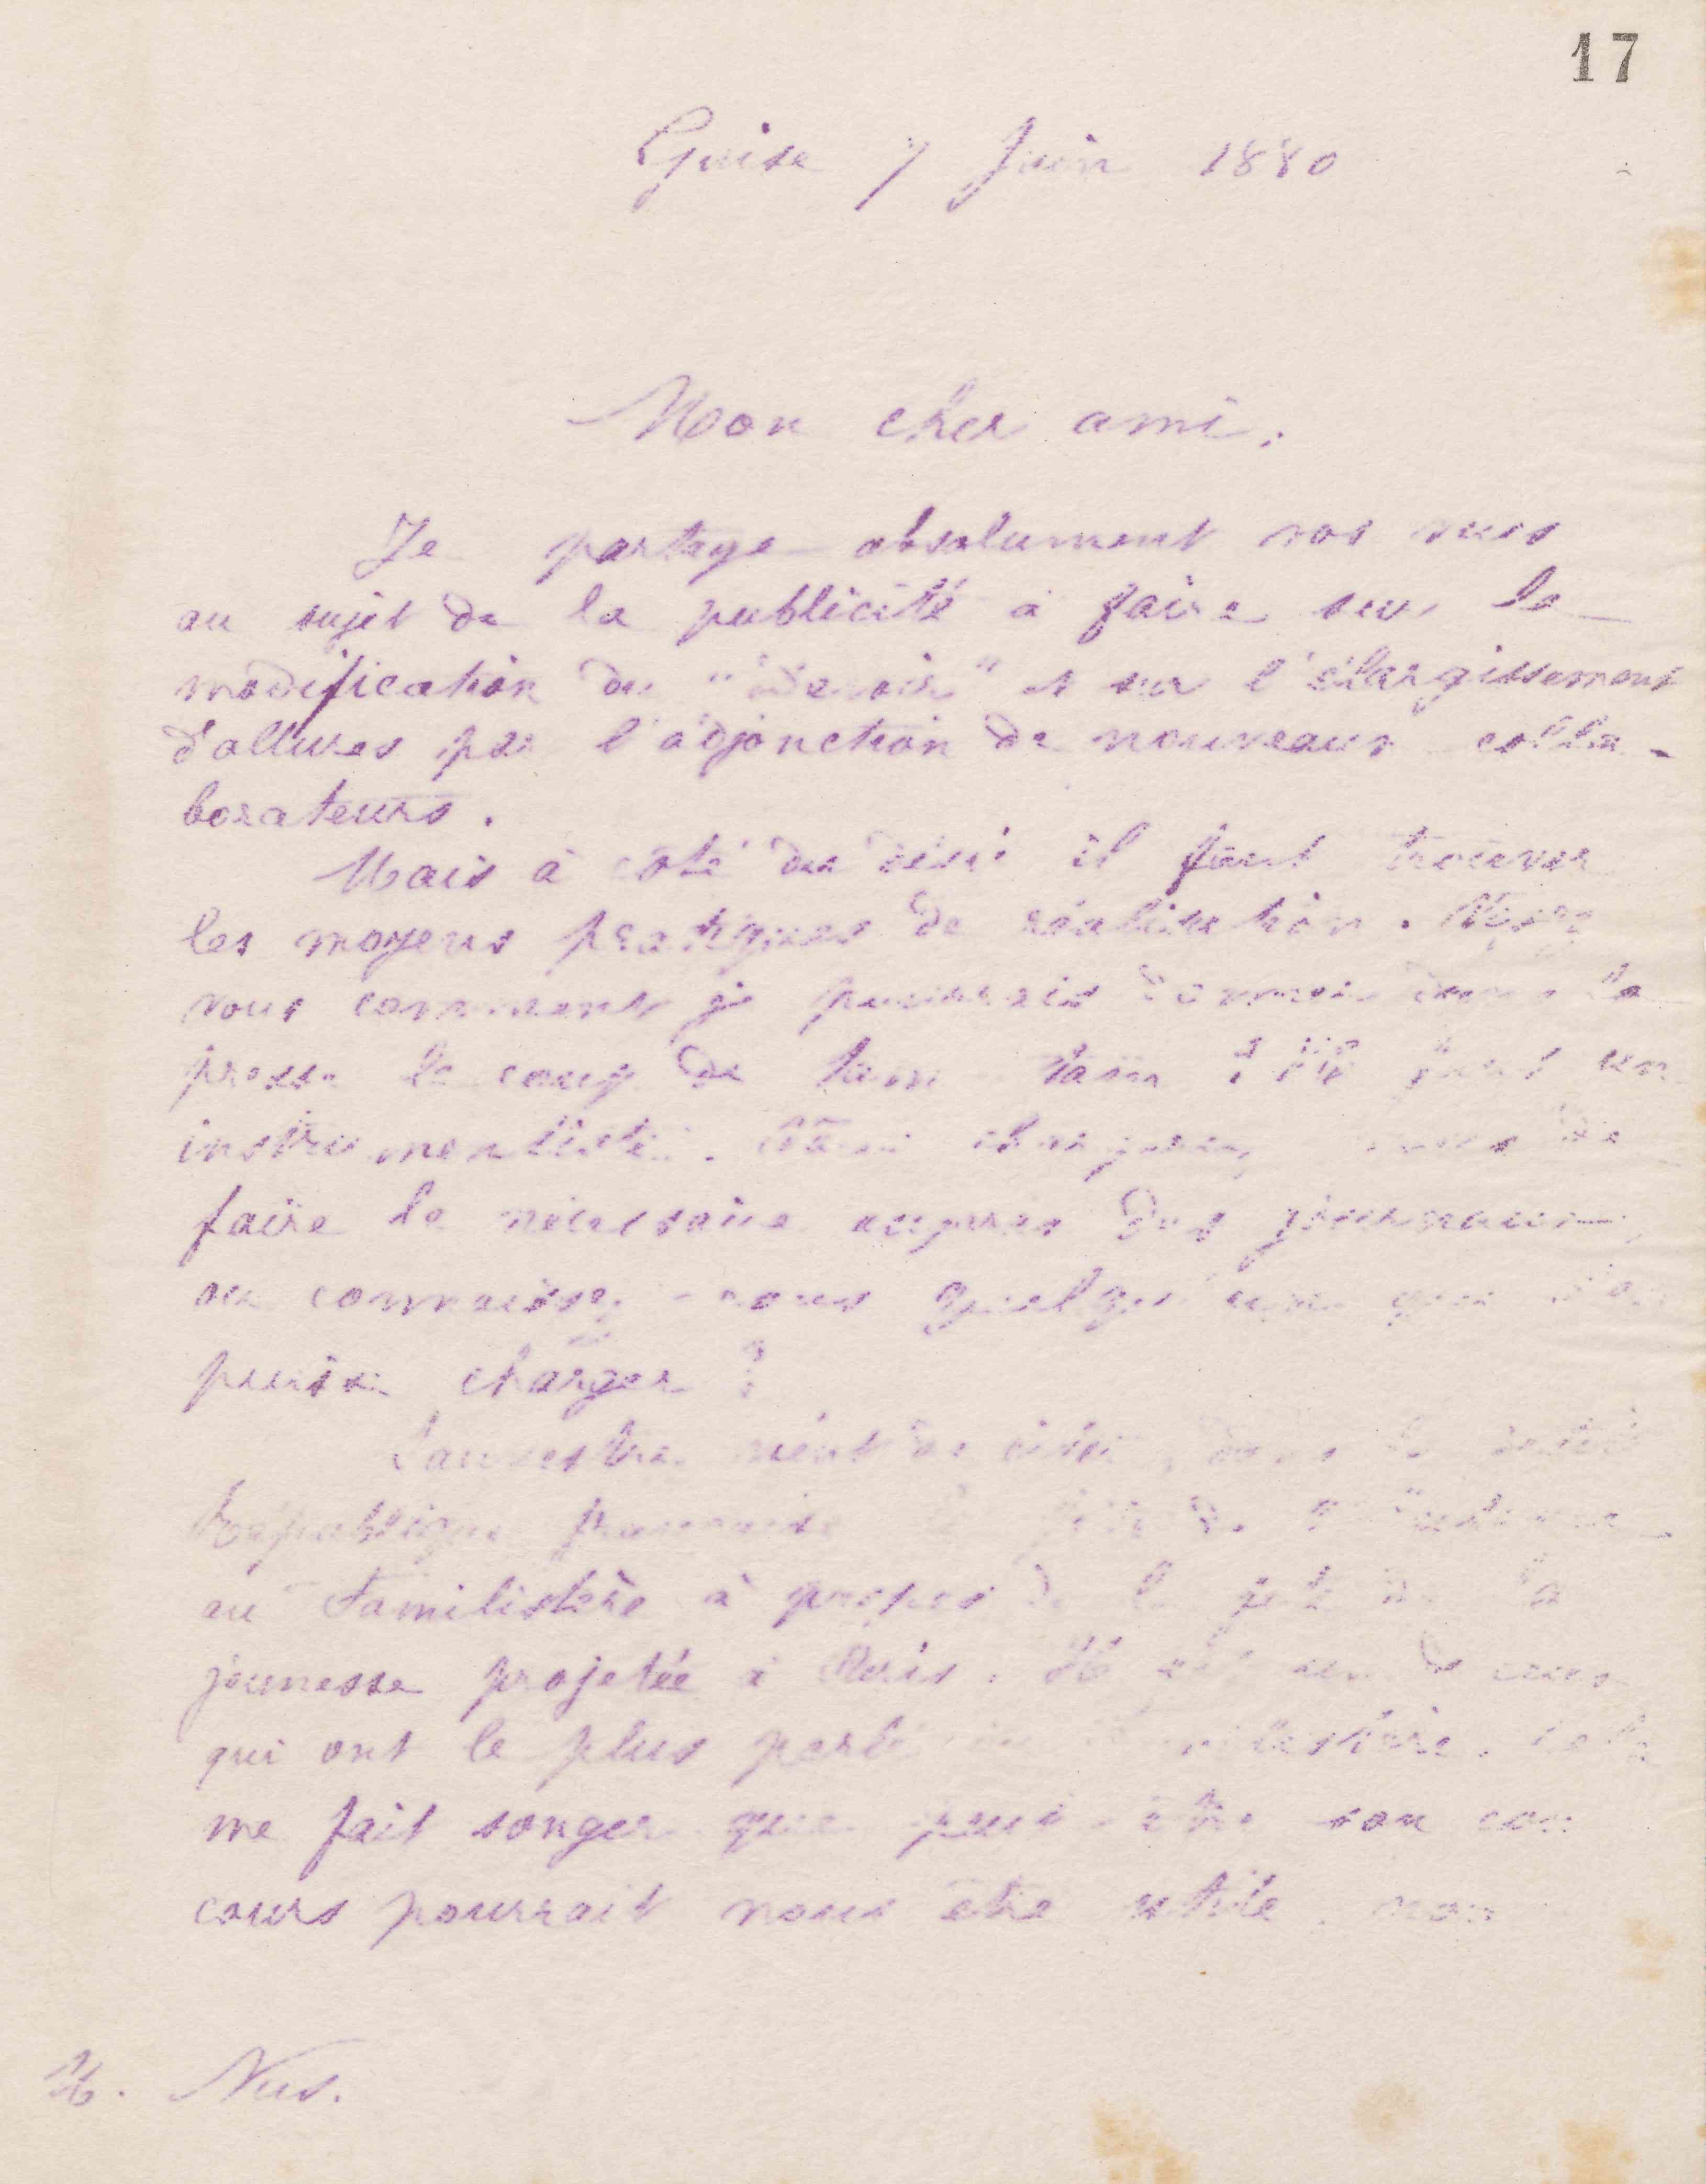 17
Guise 7 Juin 1880
Mon cher ami,
Je partage absolument vos vues
au sujet de la publicité à faire sur la
modification du "Devoir" et sur l'élargissement
d'allures par l'adjonction de nouveaux colla-
borateurs.
Mais à côté du désir il faut trouver
les moyens pratiques de réalisation. Voyez
vous comment je pourrais donner dans la
presse le coup de tam tam ? Il faut un
instrumentiste.
faire le nécessaire auprès des journaux,
ou connaissez-vous quelqu'un qui s'en
puisse charger ?
Sauvestre vient de citer, dans la petite
République française
au Familistère à propos de la fête de la
jeunesse projetée à Paris. Il est un de ceux
qui ont le plus parlé du Familistère. Cela
me fait songer que peut-être son con
cours pourrait nous être utile. non
M. Nus.